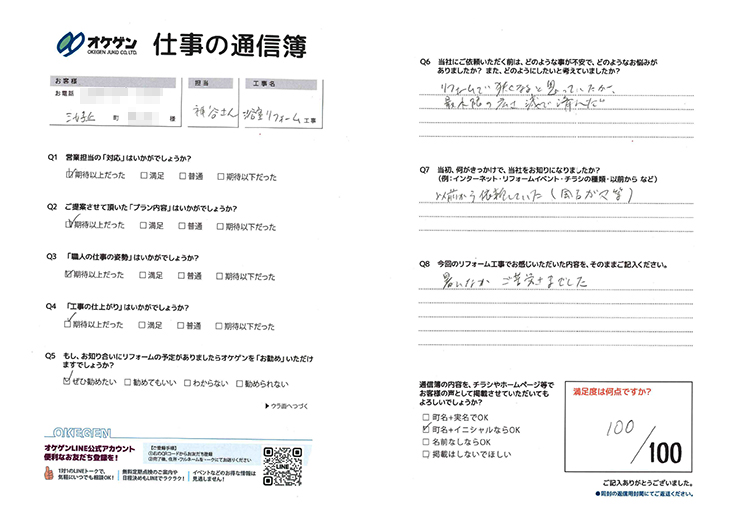 オケゲン
OKEGEN JUKO CO., LTD.
仕事の通信簿
お客様
お電話
町 様
担当
神谷さん
工事名
浴室リフォーム 工事
Q1 営業担当の「対応」はいかがでしょうか?
☑期待以上だった □満足 □普通 □期待以下だった
Q2 ご提案させて頂いた「プラン内容」はいかがでしょうか?
☑期待以上だった □満足 □普通 □期待以下だった
Q3 「職人の仕事の姿勢」はいかがでしょうか?
☑期待以上だった □満足 □普通 □期待以下だった
Q4 「工事の仕上がり」はいかがでしょうか?
☑期待以上だった □満足 □普通 □期待以下だった
Q5 もし、お知り合いにリフォームの予定がありましたらオケゲンを「お勧め」いただけ
ますでしょうか?
☑ぜひ勧めたい □勧めてもいい □わからない □勧められない
▶ウラ面へつづく
OKEGEN
オケゲンLINE公式アカウント
便利なお友だち登録を!
【ご登録手順】
①右のQRコードからお友だち登録
②完了後、住所・フルネームをトークにてお送りください
LINE
1対1のLINEトークで、
気軽にいつでも相談OK!
無料定期点検のご案内や
日程決めもLINEでラクラク!
イベントなどのお得な情報は
見逃しません!
Q6 当社にご依頼いただく前は、どのような事が不安で、どのようなお悩みが
ありましたか? また、どのようにしたいと考えていましたか?
リフォームで狭くなると思っていたが、
最小限の広さ減で済んだ
Q7 当初、何がきっかけで、当社をお知りになりましたか?
(例:インターネット・リフォームイベント・チラシの種類・以前から など)
以前から依頼していた
Q8 今回のリフォーム工事でお感じいただいた内容を、そのままご記入ください。
暑いなか ご苦労さまでした
通信簿の内容を、チラシやホームページ等で
お客様の声として掲載させていただいても
よろしいでしょうか?
□町名+実名でOK
☑町名+イニシャルならOK
□名前なしならOK
□掲載はしないでほしい
満足度は何点ですか?
100/100
ご記入ありがとうございました。
●同封の返信用封筒にてご返送ください。